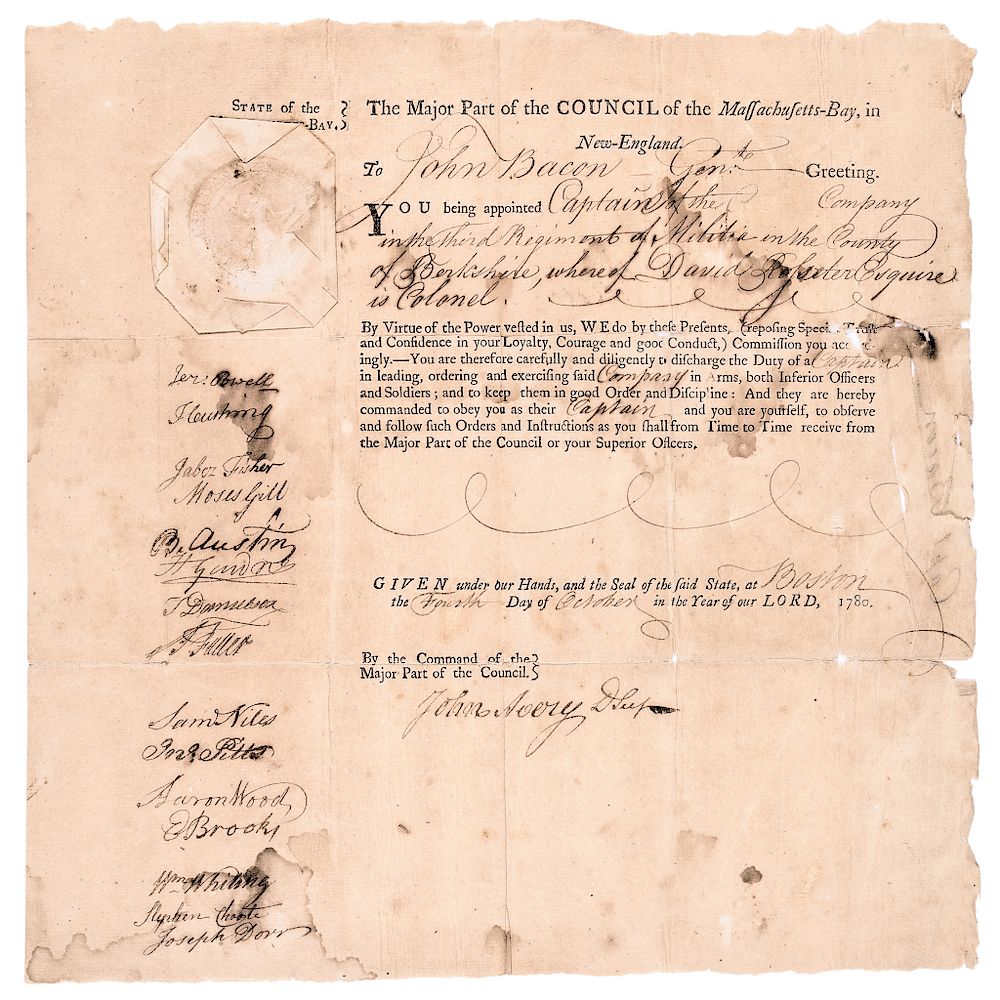 STATE of the
-BAY.
The Major Part of the COUNCIL of the Maſſachuſetts-Bay, in
New-England.
To John Bacon Gen.te Greeting.
YOU being appointed Captain of the Company
in the third Regiment of Militia in the County
of Berkshire, whereof David Rosseter Esquire
is Colonel.
By Virtue of the Power veſted in us, WE do by theſe Preſents, (repoſing Special Truſt
and Confidence in your Loyalty, Courage and good Conduct,) Commiſſion you accord-
ingly.—You are therefore carefully and diligently to diſcharge the Duty of a Captain
in leading, ordering and exerciſing ſaid Company in Arms, both Inferior Officers
and Soldiers; and to keep them in good Order and Diſcipline: And they are hereby
commanded to obey you as their Captain and you are yourſelf, to obſerve
and follow ſuch Orders and Inſtructions as you ſhall from Time to Time receive from
the Major Part of the Council or your Superior Officers.
GIVEN under our Hands, and the Seal of the ſaid State, at Boston
the Fourth Day of October in the Year of our LORD, 1780.
By the Command of the
Major Part of the Council.
John Avery D Secy
Jer: Powell
T Cushing
Jabez Fisher
Moses Gill
B. Austin
H Gardner
T Danielson
Fuller
Saml Niles
Jno Pitts
Aaron Wood
E Brooks
Wm Whiting
Stephen Choate
Joseph Dorr